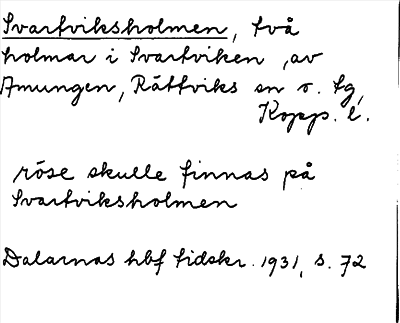 Svartviksholmen, två
holmar i Svartviken, av
Amungen, Rättviks sn o. tg,
Kopp. l.
röse skulle finnas på
Svartviksholmen
Dalarnas hbf tidskr. 1931, s. 72